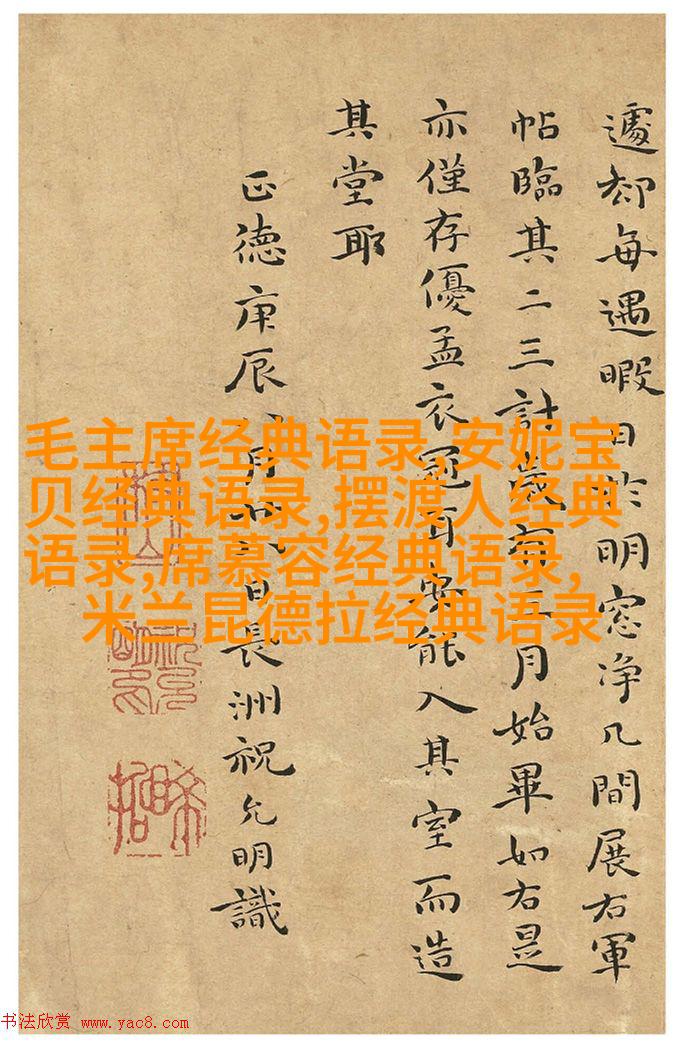 遽却每遇暇日於明窓净几間展右軍
帖臨其二三計歲有五月始畢如右是
亦僅存優孟衣冠耳安能入其室而造
其堂耶
正德庚辰八月日長洲祝允明識
毛主席经典语录,安妮宝
贝经典语录,摆渡人经典
语录,席慕容经典语录,
米兰昆德拉经典语录
书法欣赏 www.yac8.com